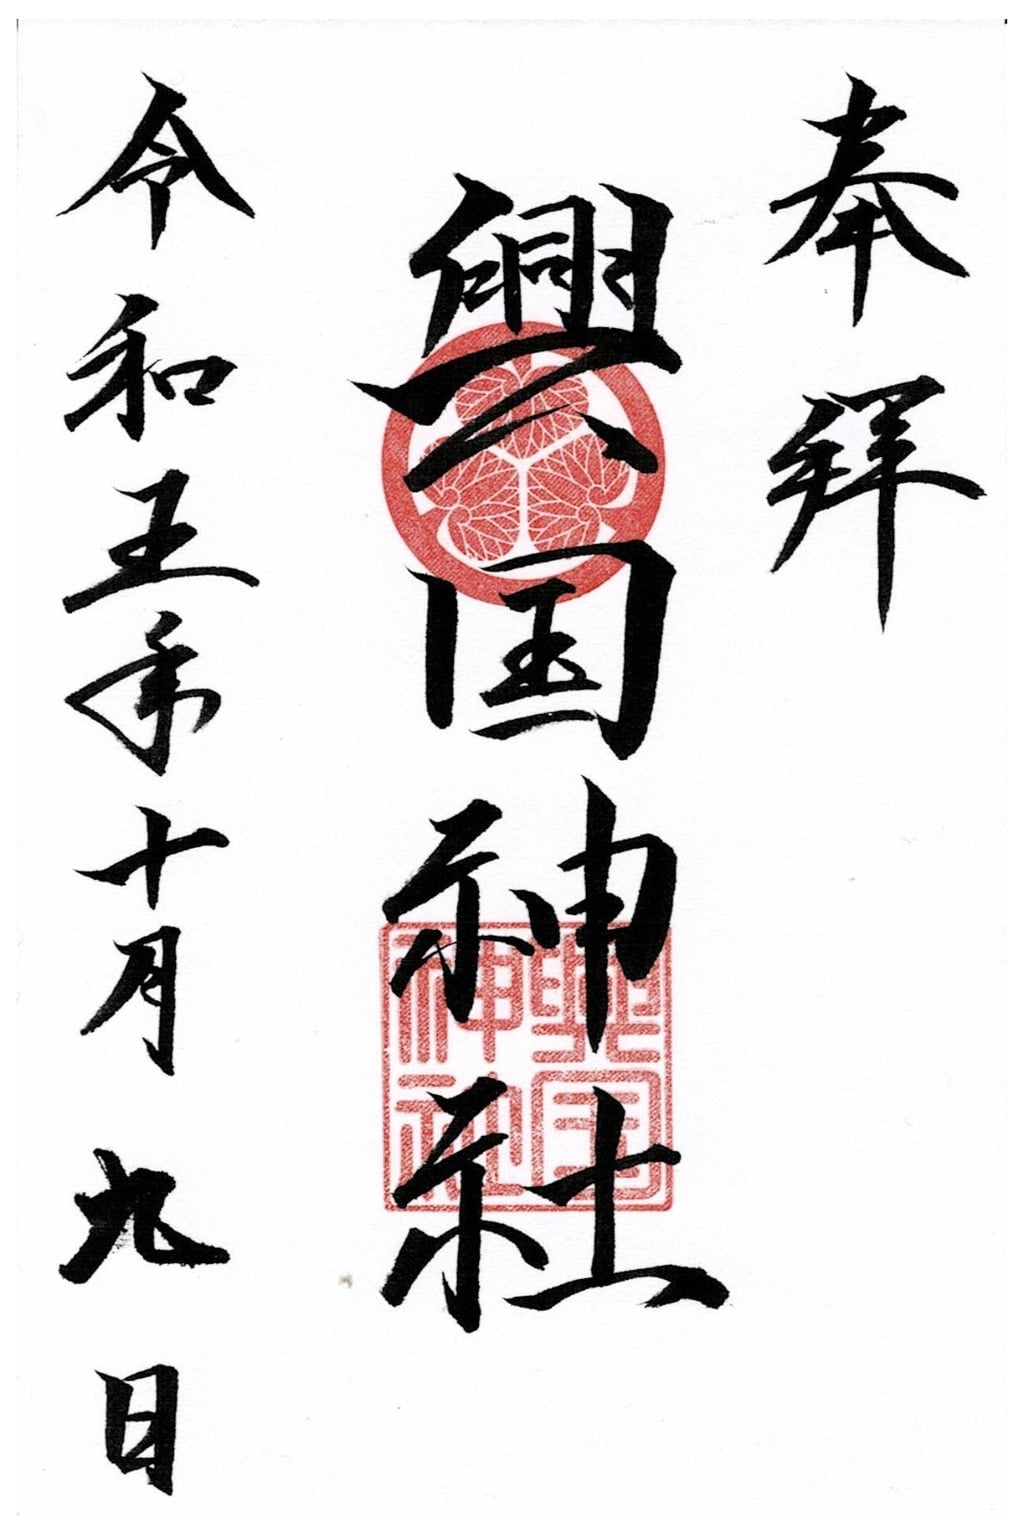 奉拝
興国神社
興国神社
令和五年十月九日